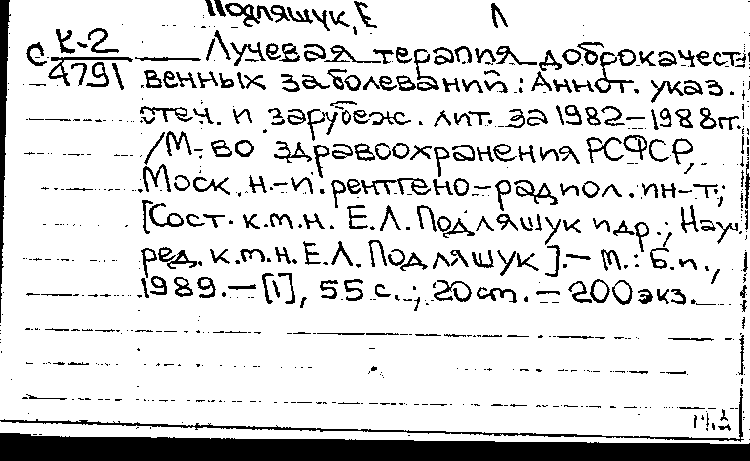 Подляшук, Е Л
С К-2/4791 Лучевая терапия доброкачест-
венных заболеваний: Аннот. указ.
отеч. и зарубеж. лит. за 1982-1988гг.
/М-во здравоохранения РСФСР,
Моск. н.-и. рентгено-радиол. ин-т;
[Сост. к.м.н. Е.Л. Подляшук и др.; Науч.
ред. к.м.н. Е.Л. Подляшук]. - М.: Б.и.,
1989. - [1], 55 с.; 20 см. - 200 экз.